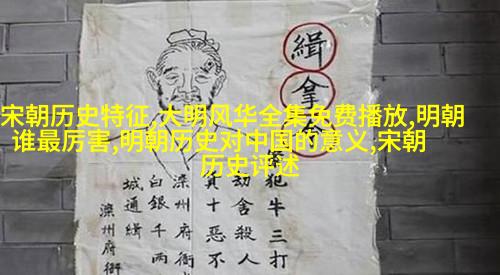 宋朝历史特征,大明风华全集免费播放,明朝
谁最厉害,明朝历史对中国的意义,宋朝
历史评述
緝拿
犯牛三打
劫舍殺人
十惡不
滦州府衙
白銀千兩
城通緝
滦州府衙